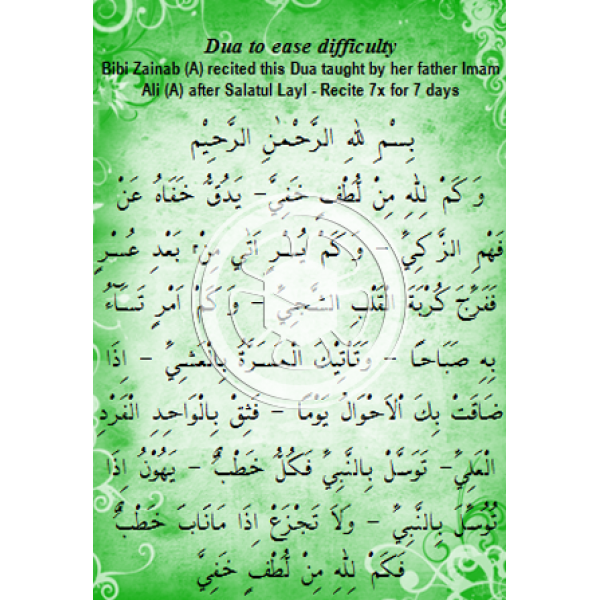 Dua to ease difficulty
Bibi Zainab (A) recited this Dua taught by her father Imam
Ali (A) after Salatul Layl - Recite 7x for 7 days
بِسْمِ لٰلهِ الرَّحْمٰنِ الرَّحِيْمِ
وَكَمْ لِلّٰهِ مِنْ لُطْفٍ خَفِيٍّ– يَدُقُّ خَفَاهُ عَنْ
فَهْمِ الزَّكِيِّ – وَكَمْ يُسْرٍ اَتٰي مِنْ بَعْدِ عُسْرٍ
فَفَرَّجَ كُرْبَةَ الْقَلْبِ الشَّجِيِّ – وَكَمْ اَمْرٍ تَسَآءُ
بِهِ صَبَاحًا -- وَتَاْتِيْكَ الْمَسَرَّةُ بِالْعَشِيِّ – اِذَا
ضَاقَتْ بِكَ الْاَحْوَالُ يَوْمًا – فَثِقْ بِالْوَاحِدِ الْفَرْدِ
الْعَلِيِّ– تَوَسَّلْ بِالنَّبِيِّ فَكُلُّ خَطْبٌ – يَهُوْنُ اِذَا
تُوُسِّلَ بِالنَّبِيِّ – وَلَا تَجْزَعْ اِذَا مَانَابَ خَطْبٌ
فَكَمْ لِلّٰهِ مِنْ لُطْفٍ خَفِيٍّ